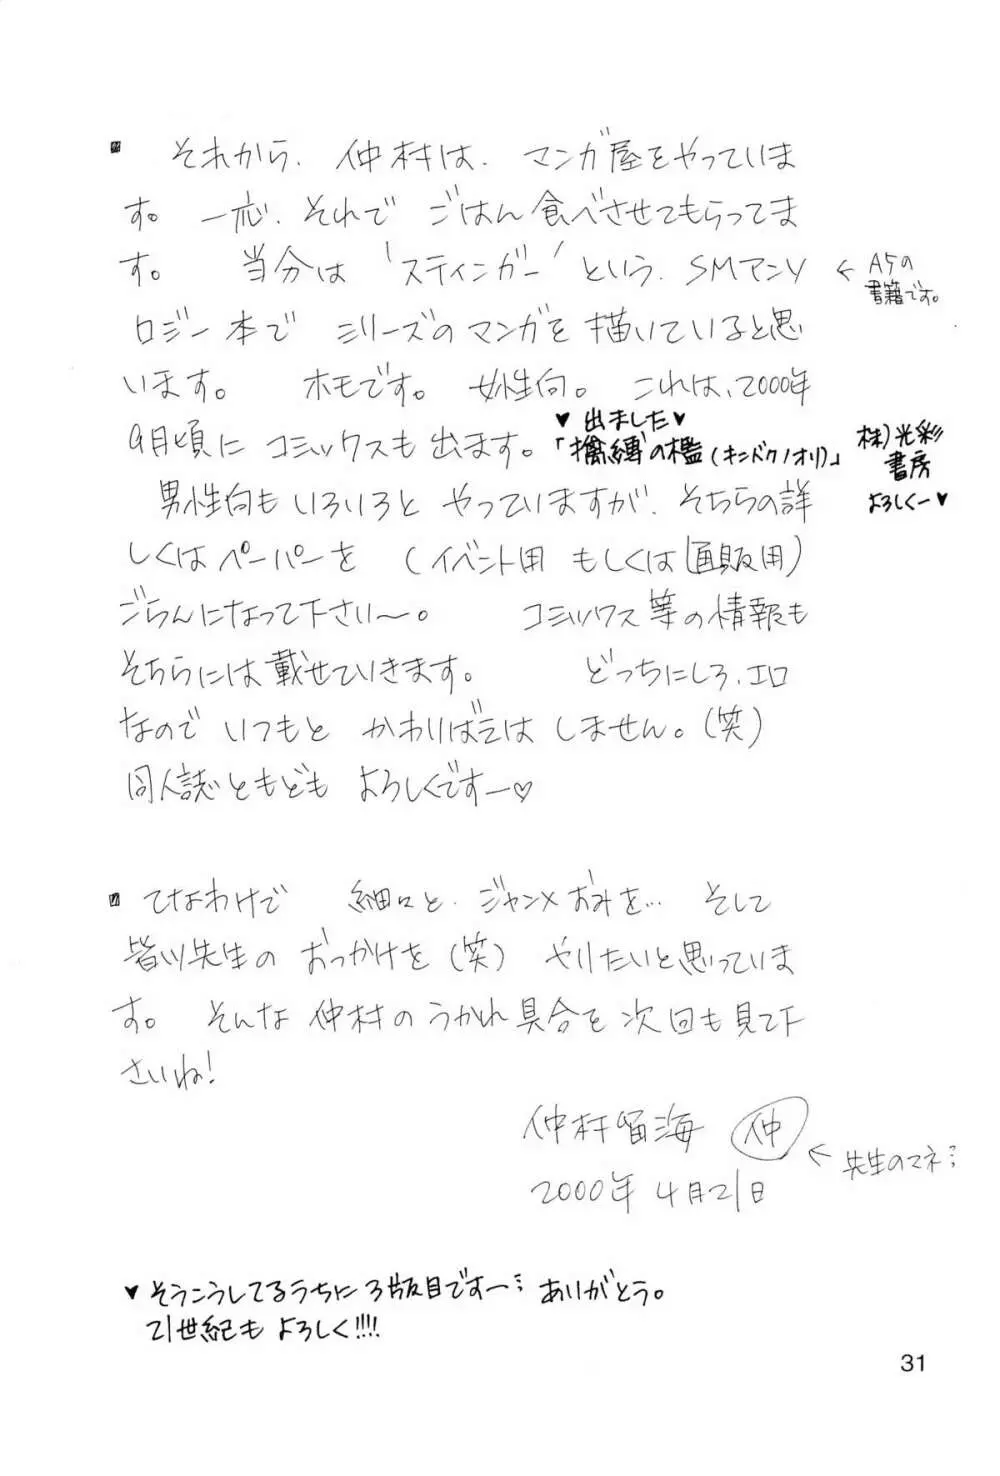 それから、仲村は、マンガ屋をやっていま
す。一応、それで ごはん食べさせてもらってま
す。 当分は 'スティンガー' という、SMアンソ
← A5の
書籍です。
ロジー本で シリーズのマンガを描いていると思
います。 ホモです。 女性向。 これは、2000年
♥ 出ました♥
9月頃に コミックスも出ます。
「擒縛の檻(キンバクノオリ)」
株)光彩
書房
よろしくー♥
男性向もいろいろと やっていますが、そちらの詳
しくはペーパーを (イベント用 もしくは通販用)
ごらんになって下さい〜。 コミックス等の情報も
そちらには載せていきます。 どっちにしろ、エロ
なので いつもと かわりばえは しません。(笑)
同人誌ともども よろしくですー♡
てなわけで 細々と、ジャン×おみを… そして
皆川先生の おっかけを(笑) やりたいと思っていま
す。 そんな 仲村のうかれ具合を次回も見て下
さいね!
仲村留海 仲
← 先生のマネ…
2000年 4月21日
♥ そうこうしてるうちに3版目ですー… ありがとう。
21世紀も よろしく!!!!
31